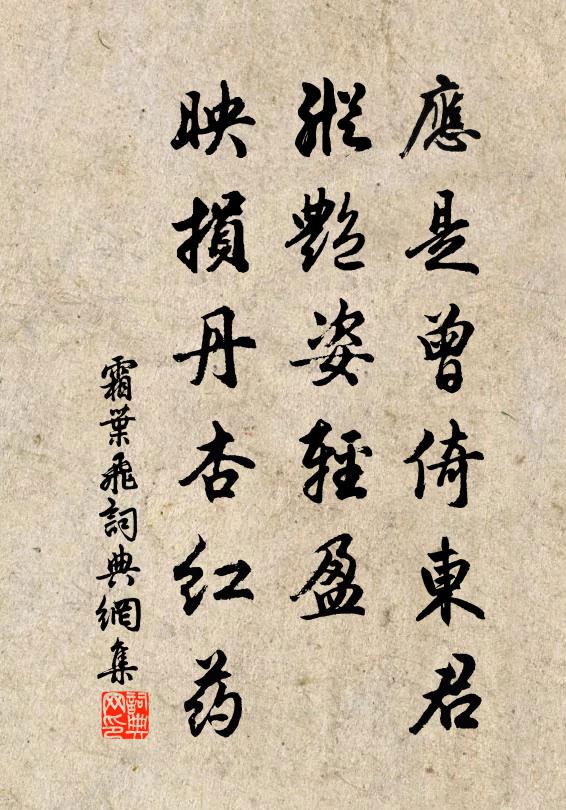 應是曾倚東君
縱艷姿輕盈
映損丹杏紅药
霜葉飛詞典網集
詞典
网印